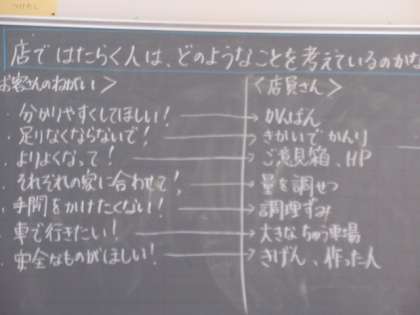 つけたし
店ではたらく人は、どのようなことを考えているのかな
お客さんのねがい〉
〈店員さん〉
・分かりやすくしてほしい! → かんばん
・足りなくならないで! → きかいでかんり
・よりよくなって! → ご意見箱、HP
・それぞれの家に合わせて! → 量を調せつ
・手間をかけたくない! → 調理ずみ
・車で行きたい! → 大きなちゅう車場
・安全なものがほしい! → きげん、作った人